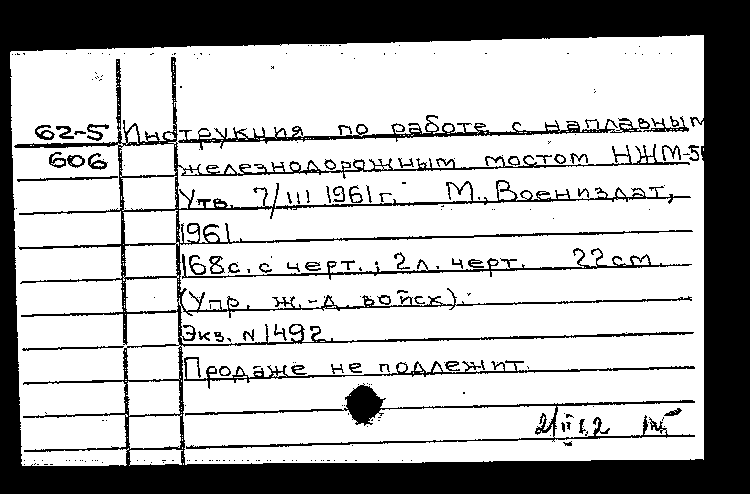 62-5 Инструкция по работе с наплавным
606 железнодорожным мостом НЖМ-5
Утв. 7/III 1961г. М., Воениздат,
1961.
168с. с черт.; 2л. черт. 22см.
(Упр. ж.-д. войск).
Экз. N 1492.
Продаже не подлежит.